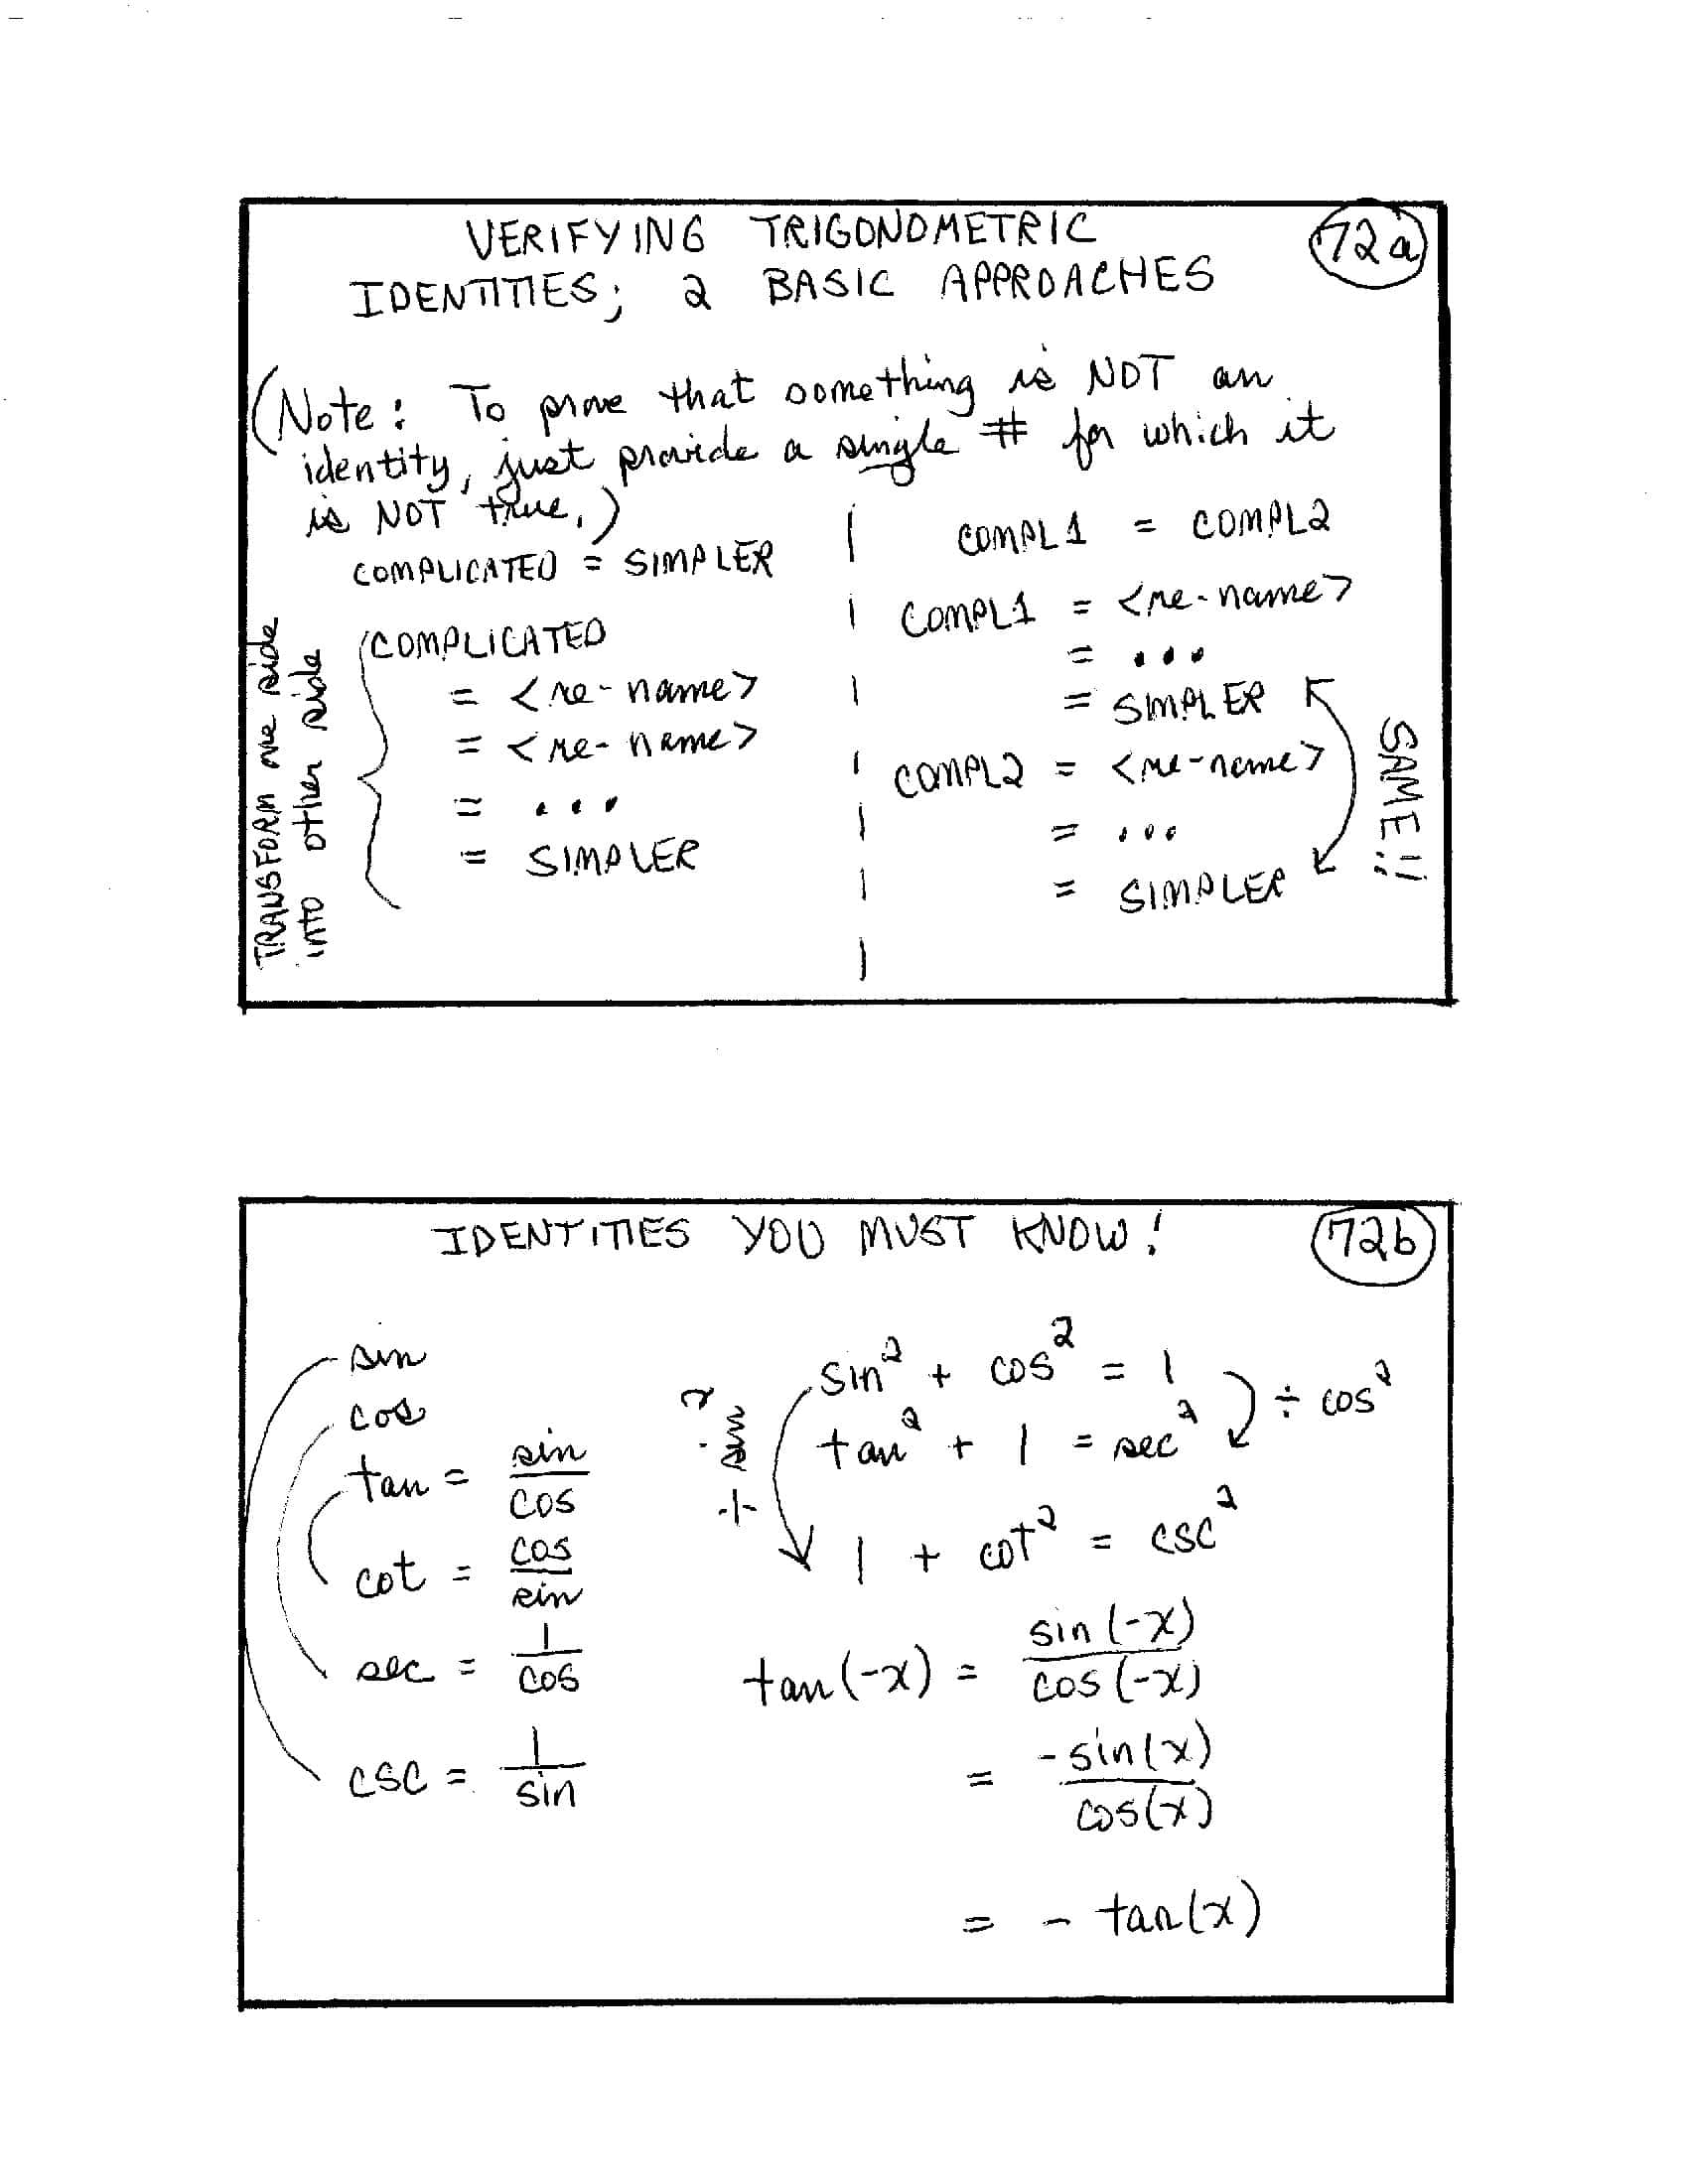 VERIFYING TRIGONOMETRIC
72a
IDENTITIES; 2 BASIC APPROACHES
(Note: To prove that something is NOT an
identity, just provide a single # for which it
is NOT true.)
COMPLICATED = SIMPLER
TRANSFORM one side
into other side
COMPLICATED
= <re-name>
= <re-name>
= ...
= SIMPLER
COMPL1 = COMPL2
COMPL1 = <re-name>
= ...
= SIMPLER
COMPL2 = <re-name>
= ...
= SIMPLER
SAME!!
IDENTITIES YOU MUST KNOW!
72b
sin
cos
tan = sin/cos
cot = cos/sin
sec = 1/cos
csc = 1/sin
sin² + cos² = 1
÷ cos²
tan² + 1 = sec²
÷ sin²
1 + cot² = csc²
tan(-x) = sin(-x)/cos(-x)
= -sin(x)/cos(x)
= - tan(x)